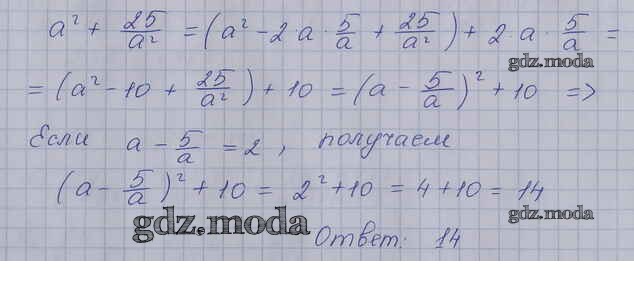 a² + 25/a² = (a² - 2·a·5/a + 25/a²) + 2·a·5/a =
gdz.moda
= (a² - 10 + 25/a²) + 10 = (a - 5/a)² + 10 =>
Если a - 5/a = 2, получаем
(a - 5/a)² + 10 = 2² + 10 = 4 + 10 = 14
gdz.moda
gdz.moda
Ответ: 14